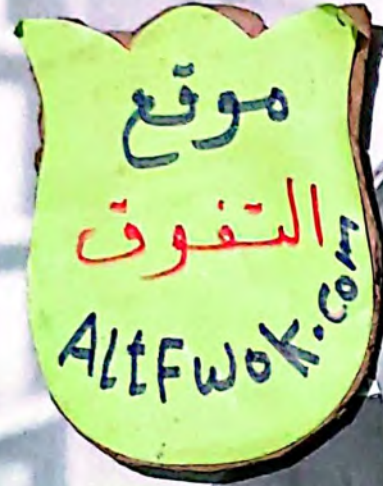 موقع
التفوق
AltFwok.com